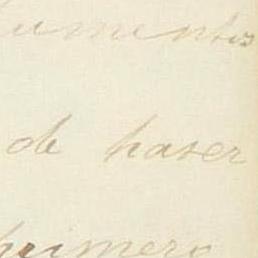 umentos
de haser
primero